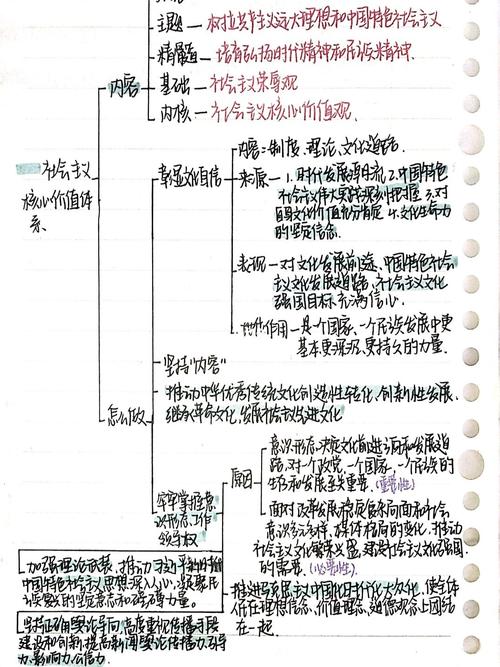 主题 — 树立共产主义远大理想和中国特色社会主义
精髓 — 培育弘扬时代精神和民族精神.
内容
基础 — 社会主义荣辱观
内核 — 社会主义核心价值观.
社会主义
核心价值体
系.
彰显文化自信
内容:制度、理论、文化道路.
来源 — 1.时代发展 2.中国特色
社会主义伟大实践深刻把握 3.对
自身文化价值充分肯定 4.文化生命力
的坚定信念.
表现 — 对文化发展前途、中国特色社会
主义文化发展道路、社会主义文化
强国目标充满信心.
作用 — 是一个国家、一个民族发展中更
基本更深沉、更持久的力量.
坚持"内容"
怎么做
推动中华优秀传统文化创造性转化、创新性发展.
继承革命文化,发展社会主义先进文化
牢牢掌握意
识形态工作
领导权
原因
意识形态决定文化前进方向和发展道
路.对一个政党、一个国家、一个民族的
生存和发展至关重要.(重要性)
面对改革发展稳定复杂局面和社会
意识多元多样、媒体格局的变化,推动
社会主义文化繁荣兴盛,建设社会主义文化强国
的需要.(必要性)
加强理论武装,推动习近平新时代
中国特色社会主义思想深入人心,
力量.
推进马克思主义中国化时代化大众化,使全体
人民在理想信念、价值理念、道德观念上团结
在一起.
坚持正确舆论导向,高度重视传播手段
建设和创新,提高新闻舆论传播力、引导
力、影响力、公信力.